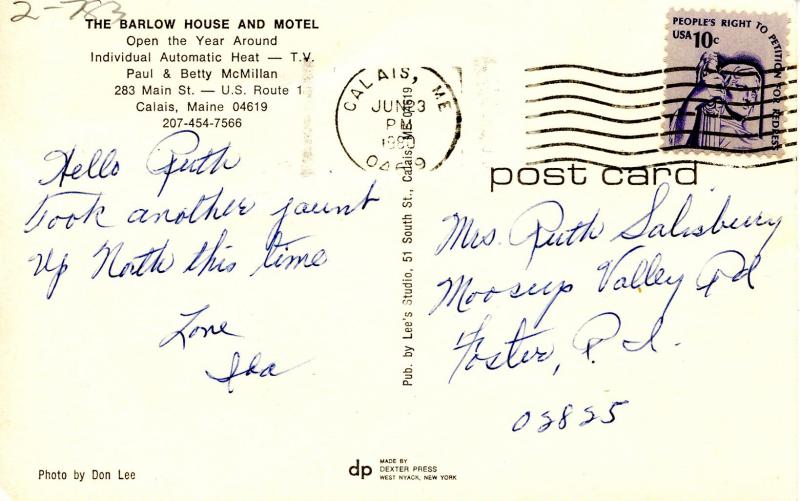 2-783
THE BARLOW HOUSE AND MOTEL
Open the Year Around
Individual Automatic Heat — T.V.
Paul & Betty McMillan
283 Main St. — U.S. Route 1
Calais, Maine 04619
207-454-7566
CALAIS, ME
JUN 3
PM
PEOPLE'S RIGHT TO PETITION FOR REDRESS
USA 10c
post card
Hello Ruth
Took another jaunt
Up North this time
Love
Ida
Pub. by Lee's Studio, 51 South St., Calais, ME 04619
Mrs. Ruth Salisbury
Moosup Valley Rd
Foster, R.I.
02825
Photo by Don Lee
dp
MADE BY
DEXTER PRESS
WEST NYACK, NEW YORK